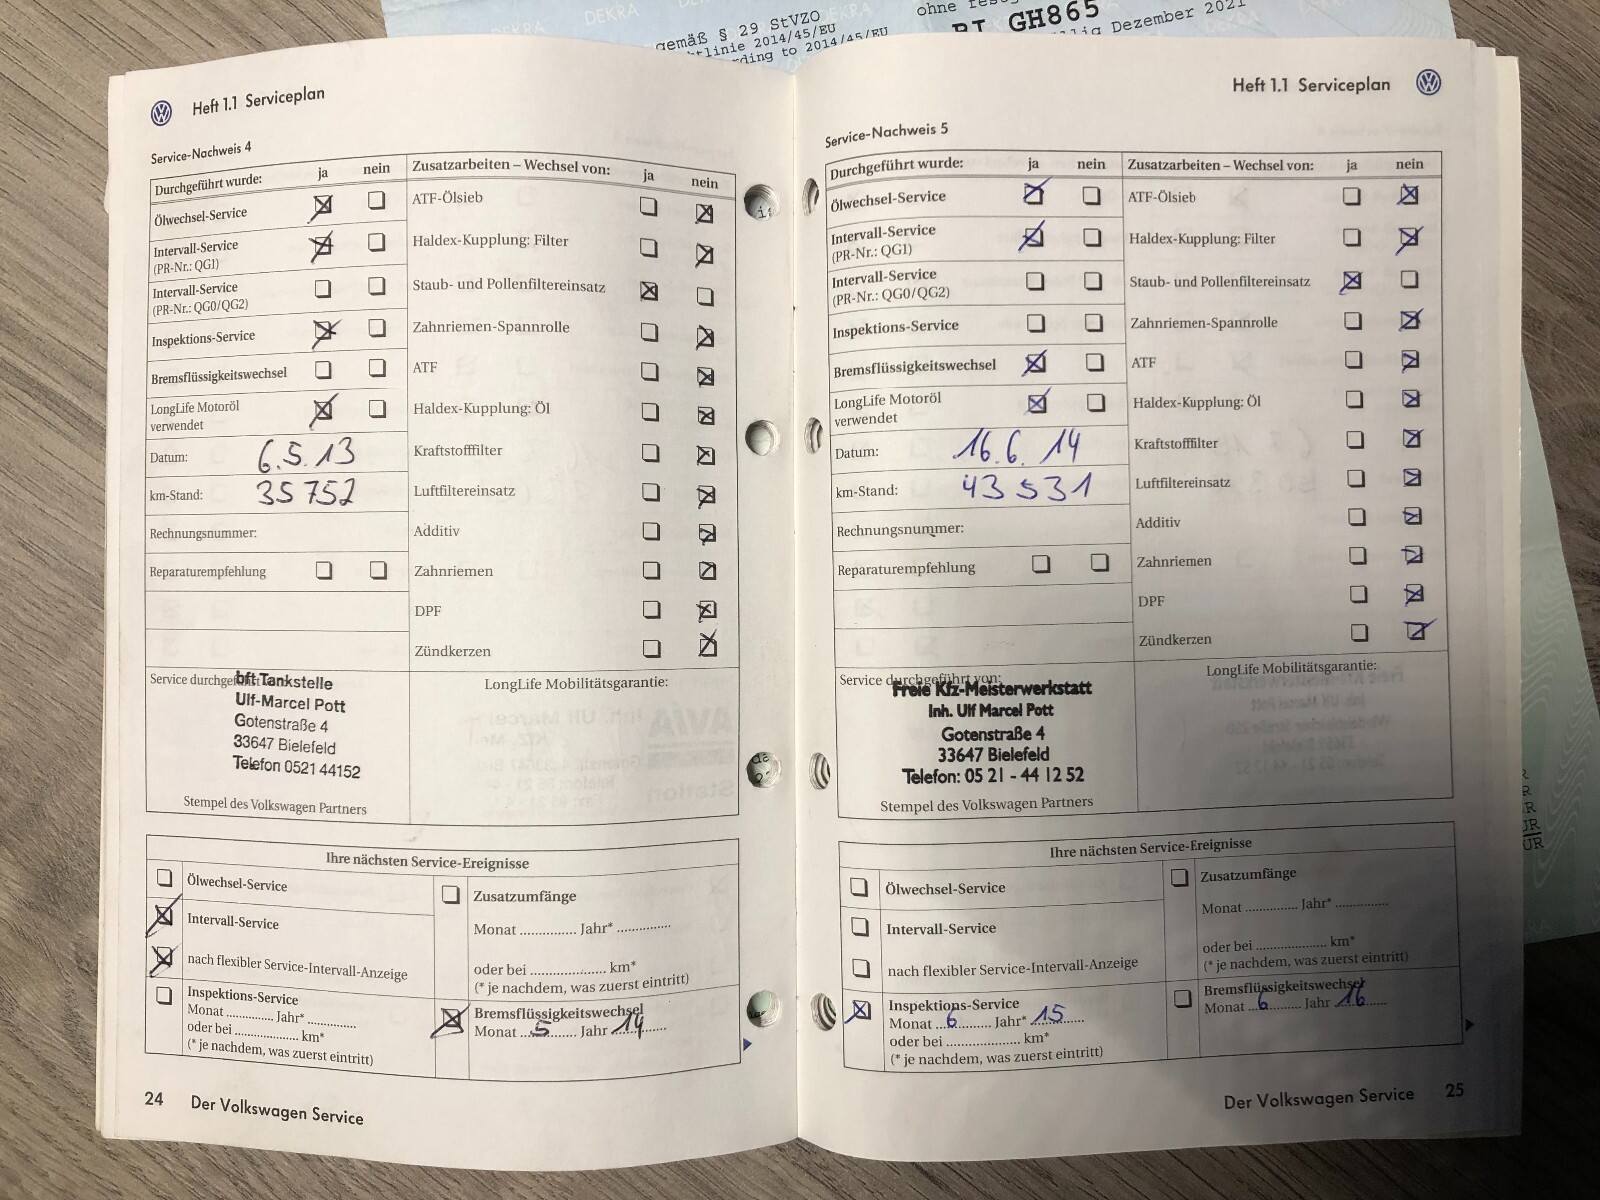 DEKRA
DEKRA
gemäß § 29 StVZO
2014/45/EU
to 2014/45/EU
ohne
GH865
Dezember 2021
Heft 1.1 Serviceplan
Service-Nachweis 4
Durchgeführt wurde: ja nein Zusatzarbeiten – Wechsel von: ja nein
Ölwechsel-Service
ATF-Ölsieb
Intervall-Service
(PR-Nr.: QG1)
Haldex-Kupplung: Filter
Intervall-Service
(PR-Nr.: QG0/QG2)
Staub- und Pollenfiltereinsatz
Inspektions-Service
Zahnriemen-Spannrolle
Bremsflüssigkeitswechsel
ATF
LongLife Motoröl
verwendet
Haldex-Kupplung: Öl
Datum: 6.5.13
Kraftstofffilter
km-Stand: 35752
Luftfiltereinsatz
Rechnungsnummer:
Additiv
Reparaturempfehlung
Zahnriemen
DPF
Zündkerzen
Service
bft Tankstelle
Ulf-Marcel Pott
Gotenstraße 4
33647 Bielefeld
Telefon 0521 44152
Stempel des Volkswagen Partners
LongLife Mobilitätsgarantie:
Ihre nächsten Service-Ereignisse
Ölwechsel-Service
Intervall-Service
nach flexibler Service-Intervall-Anzeige
Inspektions-Service
Monat .............. Jahr* ..............
oder bei ....................... km*
(* je nachdem, was zuerst eintritt)
Zusatzumfänge
Monat .............. Jahr* ..............
oder bei ....................... km*
(* je nachdem, was zuerst eintritt)
Bremsflüssigkeitswechsel
Monat 5 Jahr 14
24 Der Volkswagen Service
Heft 1.1 Serviceplan
Service-Nachweis 5
Durchgeführt wurde: ja nein Zusatzarbeiten – Wechsel von: ja nein
Ölwechsel-Service
ATF-Ölsieb
Intervall-Service
(PR-Nr.: QG1)
Haldex-Kupplung: Filter
Intervall-Service
(PR-Nr.: QG0/QG2)
Staub- und Pollenfiltereinsatz
Inspektions-Service
Zahnriemen-Spannrolle
Bremsflüssigkeitswechsel
ATF
LongLife Motoröl
verwendet
Haldex-Kupplung: Öl
Datum: 16.6.14
Kraftstofffilter
km-Stand: 43531
Luftfiltereinsatz
Rechnungsnummer:
Additiv
Reparaturempfehlung
Zahnriemen
DPF
Zündkerzen
Service durchgeführt von:
Freie Kfz-Meisterwerkstatt
Inh. Ulf Marcel Pott
Gotenstraße 4
33647 Bielefeld
Telefon: 05 21 - 44 12 52
Stempel des Volkswagen Partners
LongLife Mobilitätsgarantie:
Ihre nächsten Service-Ereignisse
Ölwechsel-Service
Intervall-Service
nach flexibler Service-Intervall-Anzeige
Inspektions-Service
Monat 6 Jahr* 15
oder bei ....................... km*
(* je nachdem, was zuerst eintritt)
Zusatzumfänge
Monat .............. Jahr* ..............
oder bei ....................... km*
(* je nachdem, was zuerst eintritt)
Bremsflüssigkeitswechsel
Monat 6 Jahr 16
Der Volkswagen Service 25